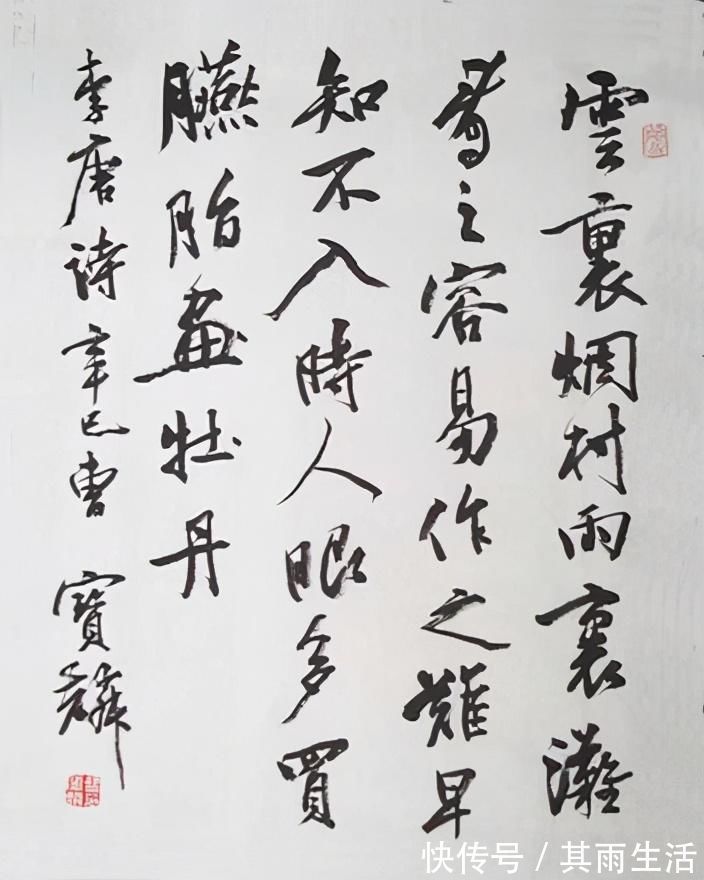 雲裏烟村雨裏灘
看之容易作之難早
知不入時人眼多買
臙脂畫牡丹
李唐詩辛巳曹寶麟
快传号/其雨生活